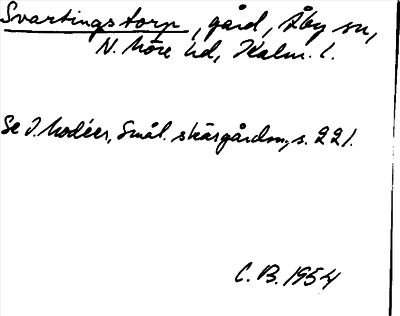 Svartingstorp, gård, Åby sn,
N. Möre hd, Kalm. l.
Se I. Modéer, Smål. skärgårdsn., s. 221.
C. B. 1954